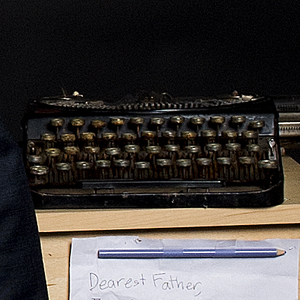 Dearest Father,